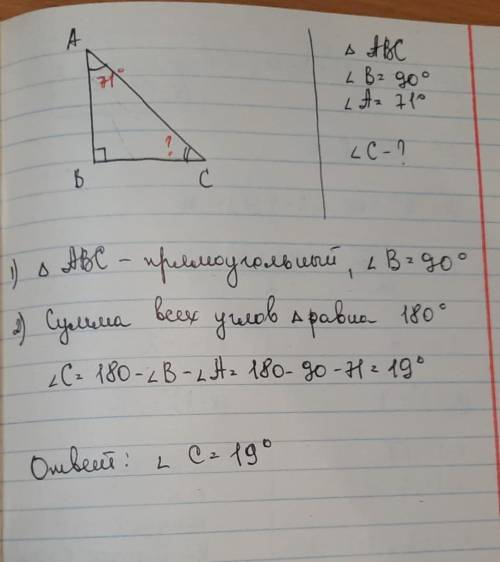 A
71°
?
B
C
△ ABC
∠B = 90°
∠A = 71°
∠C - ?
1) △ ABC - прямоугольный, ∠B = 90°
2) Сумма всех углов △ равна 180°
∠C = 180 - ∠B - ∠A = 180 - 90 - 71 = 19°
Ответ: ∠ C = 19°